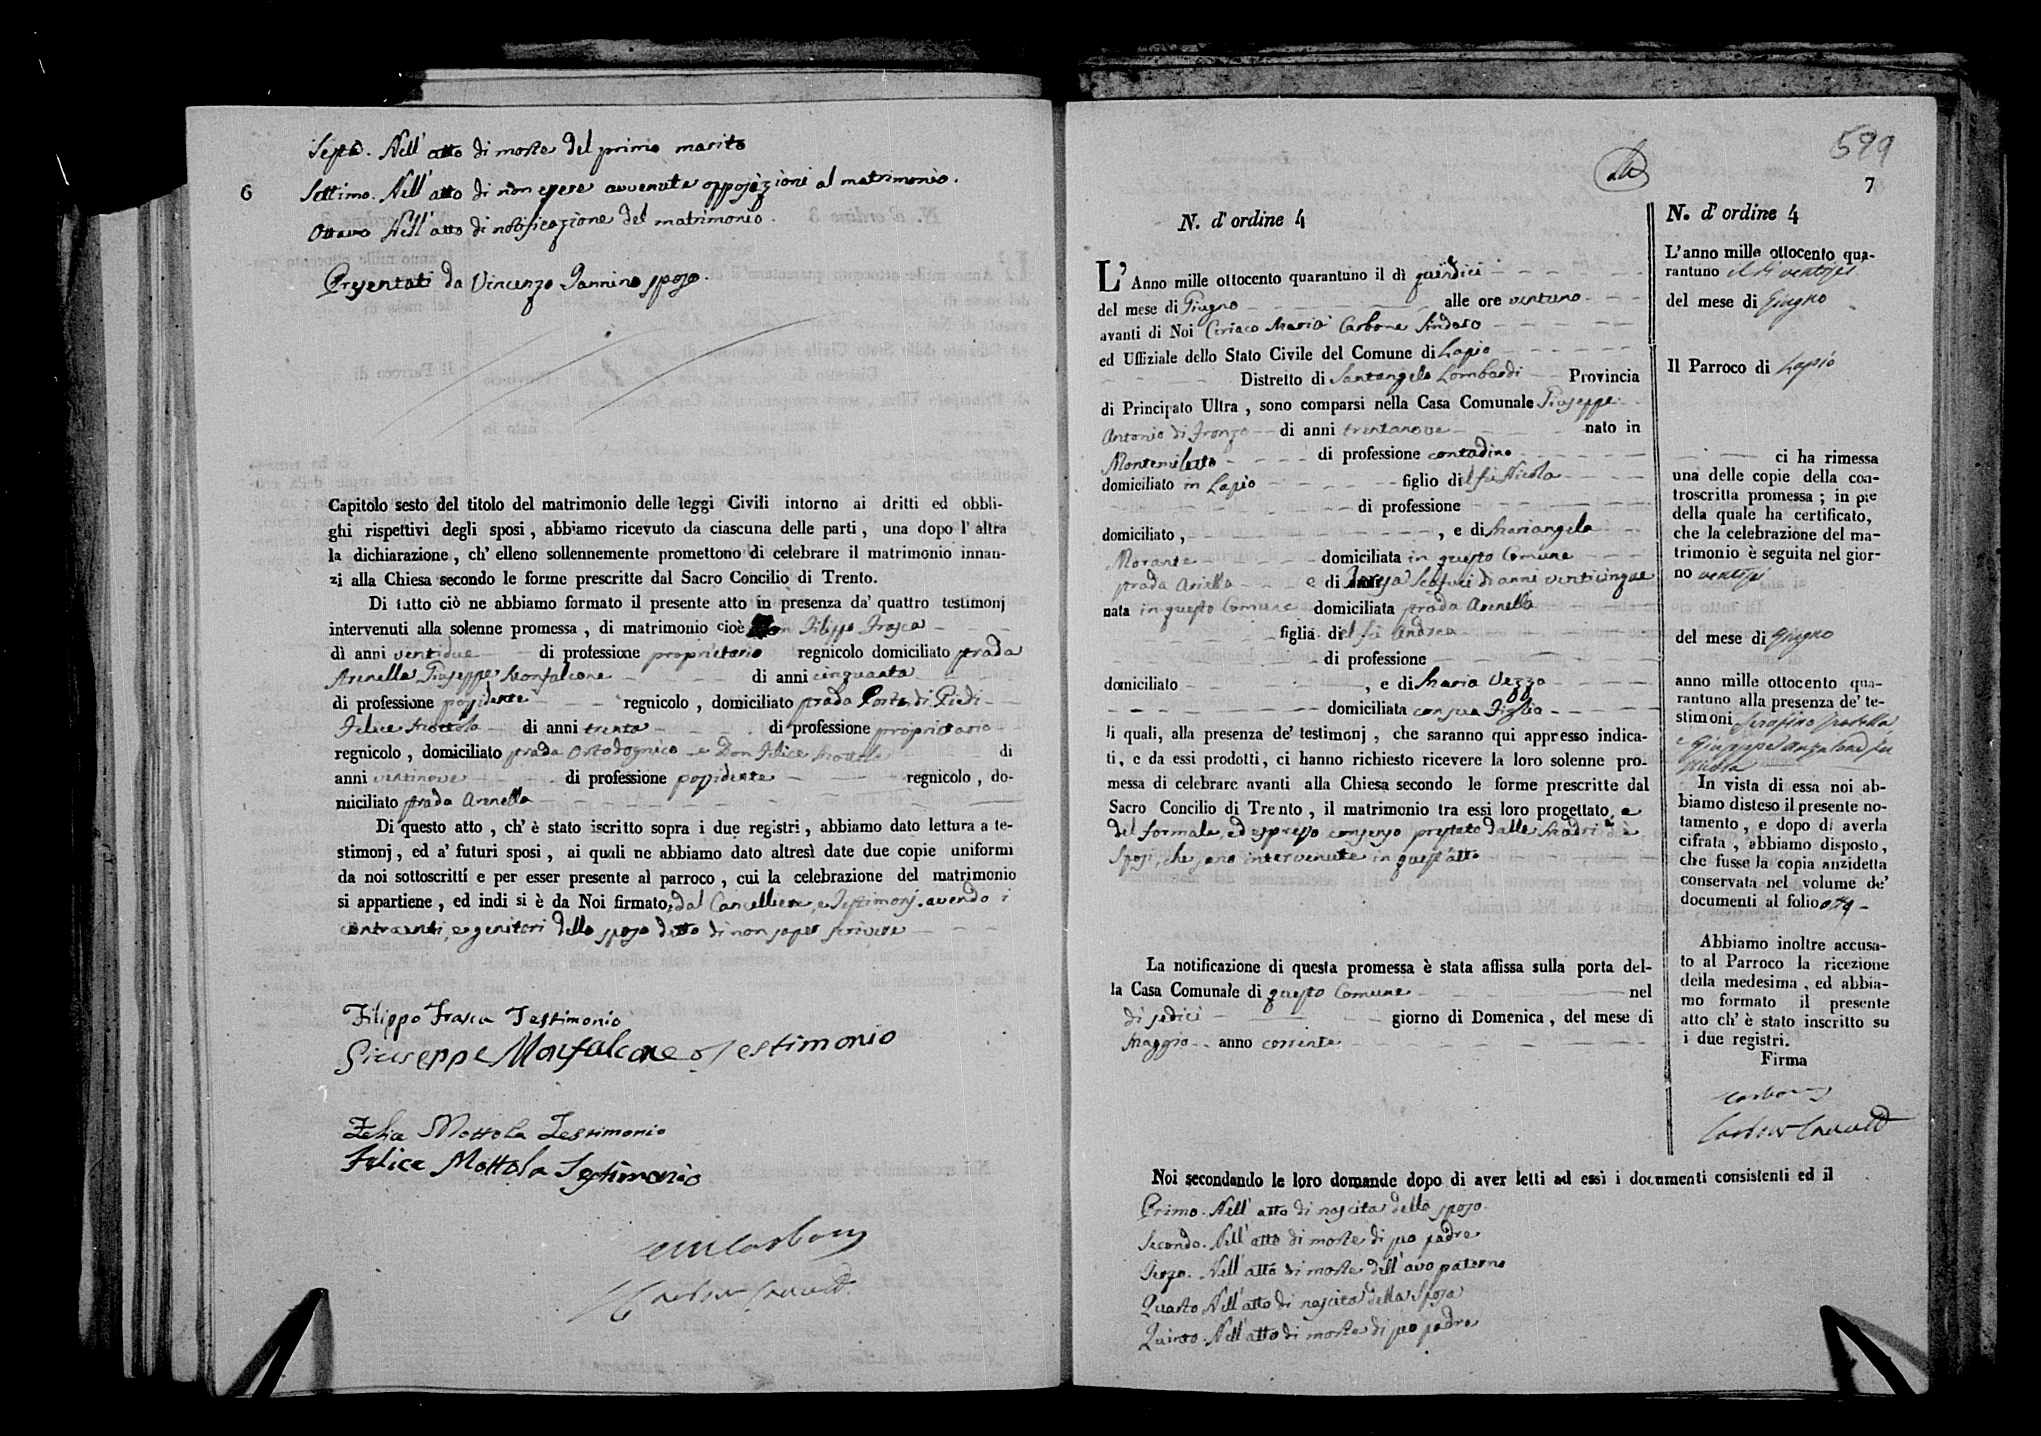 6
Sesto. Nell' atto di morte del primo marito
Settimo. Nell' atto di non essere avvenute opposizioni al matrimonio.
Ottavo Nell' atto di notificazione del matrimonio.
Presentati da Vincenzo Iannino sposo.
Capitolo sesto del titolo del matrimonio delle leggi Civili intorno ai dritti ed obbli-
ghi rispettivi degli sposi, abbiamo ricevuto da ciascuna delle parti, una dopo l' altra
la dichiarazione, ch' elleno sollennemente promettono di celebrare il matrimonio innan-
zi alla Chiesa secondo le forme prescritte dal Sacro Concilio di Trento.
Di tutto ciò ne abbiamo formato il presente atto in presenza da' quattro testimonj
intervenuti alla solenne promessa, di matrimonio cioè Don Filippo Frasca
di anni ventidue di professione proprietario regnicolo domiciliato strada
Arenella Giuseppe Monfalcone di anni cinquanta
di professione possidente regnicolo, domiciliato strada Porta di Piedi
Felice Mottola di anni trenta di professione proprietario
regnicolo, domiciliato strada Ortodognico e Don Felice Mottola di
anni ventinove di professione possidente regnicolo, do-
miciliato strada Arenella
Di questo atto, ch' è stato iscritto sopra i due registri, abbiamo dato lettura a te-
stimonj, ed a' futuri sposi, ai quali ne abbiamo dato altresì date due copie uniformi
da noi sottoscritti e per esser presente al parroco, cui la celebrazione del matrimonio
si appartiene, ed indi si è da Noi firmato, dal Cancelliere, e Testimonj. avendo i
contraenti, e genitori dello sposo detto di non saper scrivere
Filippo Frasca Testimonio
Giuseppe Monfalcone Testimonio
Felice Mottola Testimonio
Felice Mottola Testimonio
599
7
N. d' ordine 4
L' Anno mille ottocento quarantuno il dì quindici
del mese di Giugno alle ore ventuno
avanti di Noi Ciriaco Maria Carbone Sindaco
ed Uffiziale dello Stato Civile del Comune di Lapio
Distretto di Santangelo Lombardi Provincia
di Principato Ultra, sono comparsi nella Casa Comunale Giuseppe
Antonio di Fronzo di anni trentanove nato in
Montemiletto di professione contadino
domiciliato in Lapio figlio del fu Nicola
di professione
domiciliato, , e di Mariangela
Morante domiciliata in questo Comune
strada Arenella e di Teresa Scafuri di anni venticinque
nata in questo Comune domiciliata strada Arenella
figlia del fu Andrea
di professione
domiciliato , e di Maria Vezzo
domiciliata con sua Figlia
li quali, alla presenza de' testimonj, che saranno qui appresso indica-
ti, e da essi prodotti, ci hanno richiesto ricevere la loro solenne pro-
messa di celebrare avanti alla Chiesa secondo le forme prescritte dal
Sacro Concilio di Trento, il matrimonio tra essi loro progettato, e
del formale, ed espresso consenso prestato dalle Madri de'
Sposi, che sono intervenute in quest' atto
La notificazione di questa promessa è stata affissa sulla porta del-
la Casa Comunale di questo Comune nel
dì sedici giorno di Domenica, del mese di
Maggio anno corrente
N. d' ordine 4
L'anno mille ottocento qua-
rantuno il dì ventisei
del mese di Giugno
Il Parroco di Lapio
ci ha rimessa
una delle copie della con-
troscritta promessa; in piè
della quale ha certificato,
che la celebrazione del ma-
trimonio è seguita nel gior-
no ventisei
del mese di Giugno
anno mille ottocento qua-
rantuno alla presenza de' te-
stimoni Serafino
e Giuseppe Anzalone fu
Nicola
In vista di essa noi ab-
biamo disteso il presente no-
tamento, e dopo di averla
cifrata, abbiamo disposto,
che fusse la copia anzidetta
conservata nel volume de'
documenti al folio
Abbiamo inoltre accusa-
to al Parroco la ricezione
della medesima, ed abbia-
mo formato il presente
atto ch' è stato inscritto su
i due registri.
Firma
Carbone
Noi secondando le loro domande dopo di aver letti ad essi i documenti consistenti ed il
Primo. Nell' atto di nascita dello sposo.
Secondo. Nell' atto di morte di suo padre
Terzo. Nell' atto di morte dell' avo paterno
Quarto. Nell' atto di nascita della Sposa
Quinto. Nell' atto di morte di suo padre